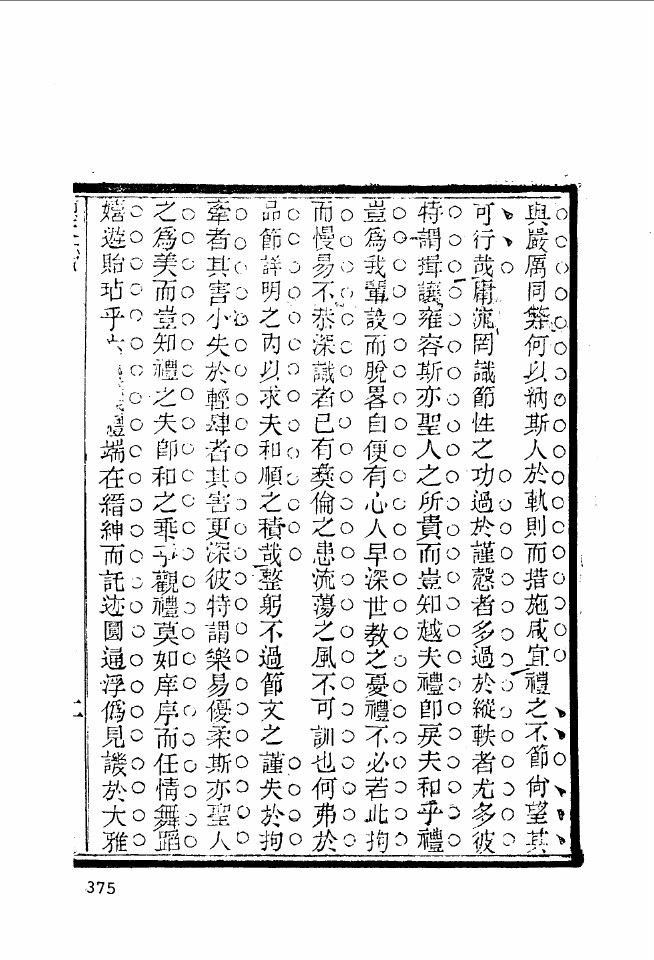 與嚴厲同弊何以納斯人於軌則而措施咸宜禮之不節尙望其
可行哉庸流罔識節性之功過於謹慤者多過於縱軼者尤多彼
特謂揖讓雍容斯亦聖人之所貴而豈知越夫禮卽戾夫和乎禮
豈爲我輩設而脫畧自便有心人早深世教之憂禮不必若此拘
而慢易不恭深識者已有彝倫之患流蕩之風不可訓也何弗於
品節詳明之內以求夫和順之積哉整躬不過節文之謹失於拘
牽者其害小失於輕肆者其害更深彼特謂樂易優柔斯亦聖人
之爲美而豈知禮之失卽和之乖乎觀禮莫如庠序而任情舞蹈
嬉遊貽玷乎六禮端在縉紳而託迹圓通浮僞見譏於大雅
二
375